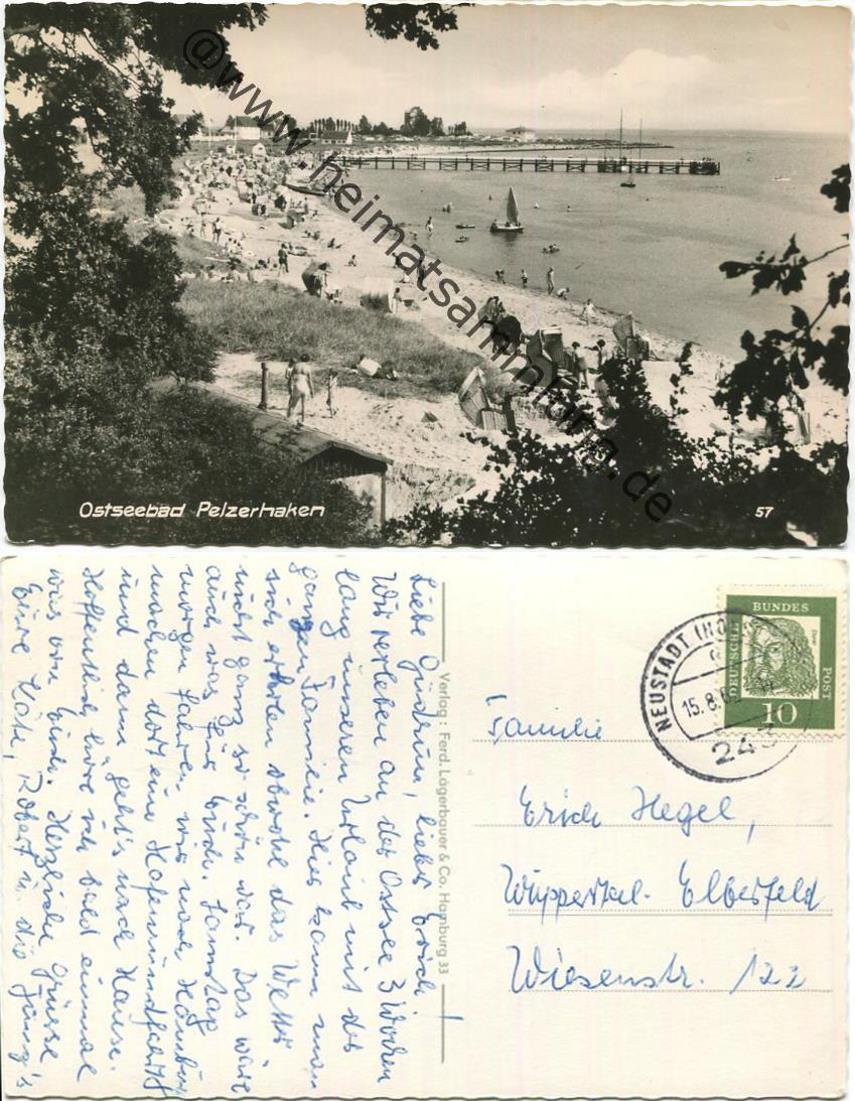 @www.heimatsammlung.de
Ostseebad Pelzerhaken
57
Liebe Gudrun, lieber Erich!
Wir verleben an der Ostsee 3 Wochen
lang unseren Urlaub mit der
ganzen Familie. Hier kann man
sich erholen obwohl das Wetter
nicht ganz so schön war. Das wäre
auch was für Euch. Samstag
morgen fahren wir nach Hamburg
machen dort eine Hafenrundfahrt
und dann geht's nach Hause.
Hoffentlich höre ich bald einmal
was von Euch. Herzliche Grüsse
Eure Käte, Robert u. die Jung's
Verlag: Ferd. Lagerbauer & Co. Hamburg 33
NEUSTADT (HOLST
15.8.6
243
DEUTSCHE BUNDES POST
10
Familie
Erich Hegel,
Wuppertal-Elberfeld
Wiesenstr. 122